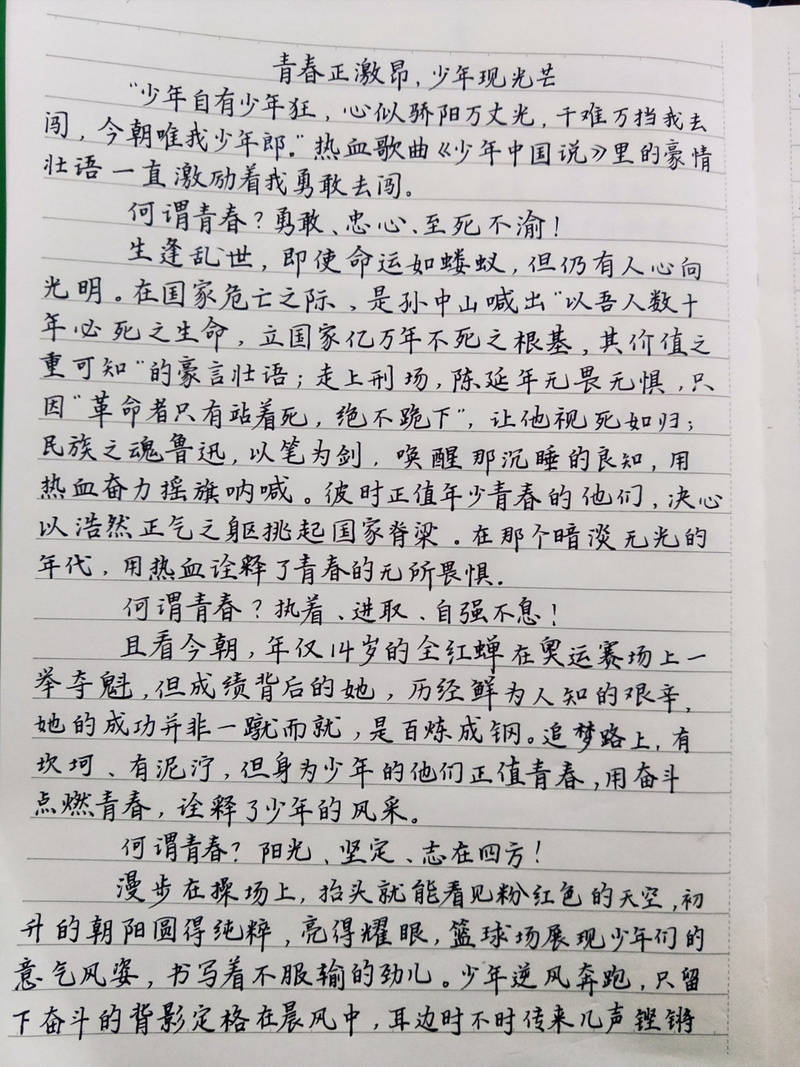 青春正激昂,少年现光芒
"少年自有少年狂,心似骄阳万丈光,千难万挡我去
闯,今朝唯我少年郎。"热血歌曲《少年中国说》里的豪情
壮语一直激励着我勇敢去闯。
何谓青春?勇敢、忠心、至死不渝!
生逢乱世,即使命运如蝼蚁,但仍有人心向
光明。在国家危亡之际、是孙中山喊出"以吾人数十
年必死之生命,立国家亿万年不死之根基,其价值之
重可知"的豪言壮语;走上刑场,陈延年无畏无惧,只
因"革命者只有站着死,绝不跪下",让他视死如归;
民族之魂鲁迅,以笔为剑,唤醒那沉睡的良知,用
热血奋力摇旗呐喊。彼时正值年少青春的他们,决心
以浩然正气之躯挑起国家脊梁。在那个暗淡无光的
年代,用热血诠释了青春的无所畏惧。
何谓青春?执着、进取、自强不息!
且看今朝,年仅14岁的全红蝉在奥运赛场上一
举夺魁,但成绩背后的她,历经鲜为人知的艰辛,
她的成功并非一蹴而就,是百炼成钢。追梦路上,有
坎坷、有泥泞,但身为少年的他们正值青春,用奋斗
点燃青春,诠释了少年的风采。
何谓青春?阳光、坚定、志在四方!
漫步在操场上,抬头就能看见粉红色的天空,初
升的朝阳圆得纯粹,亮得耀眼,篮球场展现少年们的
意气风姿,书写着不服输的劲儿。少年逆风奔跑,只留
下奋斗的背影定格在晨风中,耳边时不时传来几声铿锵